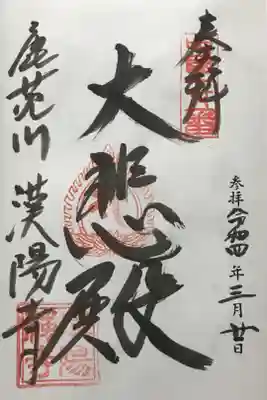 奉拝
参拝令和四年三月廿日
大悲殿
鹿苑川 漢陽寺